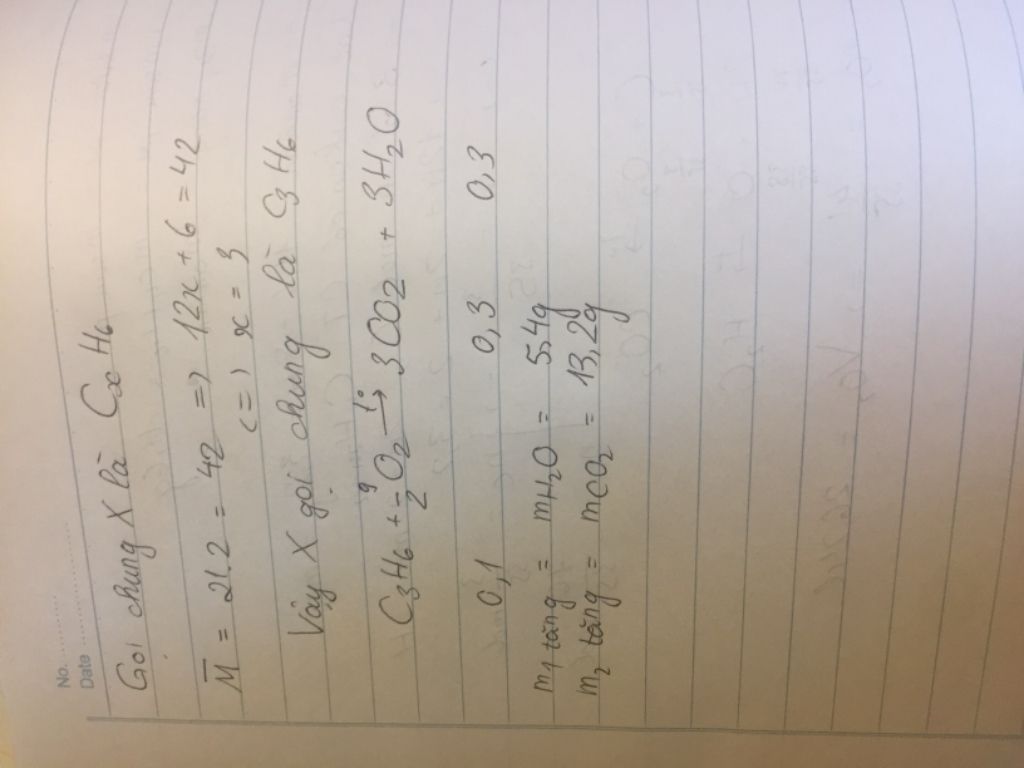 No. ............
Date ....................
Gọi chung X là CxH6
M̅ = 21.2 = 42 => 12x + 6 = 42
<=> x = 3
Vậy X gọi chung là C3H6
C3H6 + 9/2 O2 →t° 3CO2 + 3H2O
0,1 0,3 0,3
m1 tăng = mH2O = 5,4g
m2 tăng = mCO2 = 13,2g